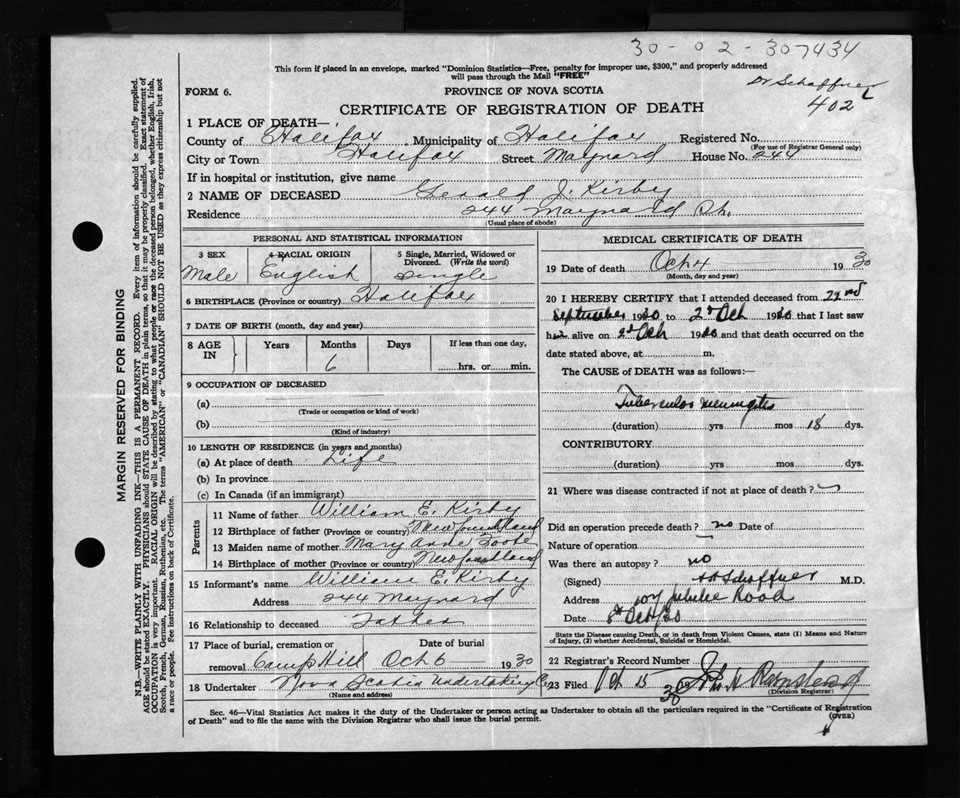 30-02-307434
This form if placed in an envelope, marked "Dominion Statistics—Free, penalty for improper use, $300," and properly addressed
will pass through the Mail "FREE"
Dr Schaffner
402
FORM 6.
PROVINCE OF NOVA SCOTIA
CERTIFICATE OF REGISTRATION OF DEATH
1 PLACE OF DEATH—
County of Halifax Municipality of Halifax Registered No.
(For use of Registrar General only)
City or Town Halifax Street Maynard House No. 244
If in hospital or institution, give name
2 NAME OF DECEASED Gerald J. Kirby
Residence 244 Maynard St.
(Usual place of abode)
PERSONAL AND STATISTICAL INFORMATION
3 SEX 4 RACIAL ORIGIN 5 Single, Married, Widowed or Divorced. (Write the word)
Male English Single
6 BIRTHPLACE (Province or country) Halifax
7 DATE OF BIRTH (month, day and year)
8 AGE IN Years Months Days If less than one day,
6 hrs. or min.
9 OCCUPATION OF DECEASED
(a)
(Trade or occupation or kind of work)
(b)
(Kind of industry)
10 LENGTH OF RESIDENCE (in years and months)
(a) At place of death Life
(b) In province
(c) In Canada (if an immigrant)
Parents
11 Name of father William E. Kirby
12 Birthplace of father (Province or country) Newfoundland
13 Maiden name of mother Mary Anne Foote
14 Birthplace of mother (Province or country) Newfoundland
15 Informant's name William E. Kirby
Address 244 Maynard
16 Relationship to deceased Father
17 Place of burial, cremation or Date of burial
removal Camp Hill Oct 6 1930
18 Undertaker Nova Scotia Undertaking Co
(Name and address)
MEDICAL CERTIFICATE OF DEATH
19 Date of death Oct 4 1930
(Month, day and year)
20 I HEREBY CERTIFY that I attended deceased from 22nd
September 1930 to 2d Oct 1930 that I last saw
him alive on 2d Oct 1930 and that death occurred on the
date stated above, at m.
The CAUSE of DEATH was as follows:—
Tubercular meningitis
(duration) yrs mos 18 dys.
CONTRIBUTORY
(duration) yrs mos dys.
21 Where was disease contracted if not at place of death?
Did an operation precede death? no Date of
Nature of operation
Was there an autopsy? no
(Signed) Schaffner M.D.
Address 107 Jubilee Road
Date 8th Oct/30
State the Disease causing Death, or in death from Violent Causes, state (1) Means and Nature
of Injury, (2) whether Accidental, Suicidal or Homicidal.
22 Registrar's Record Number
23 Filed Oct 15 30 John H
(Division Registrar)
Sec. 46—Vital Statistics Act makes it the duty of the Undertaker or person acting as Undertaker to obtain all the particulars required in the "Certificate of Registration
of Death" and to file the same with the Division Registrar who shall issue the burial permit.
(OVER)
MARGIN RESERVED FOR BINDING
N.B.—WRITE PLAINLY WITH UNFADING INK—THIS IS A PERMANENT RECORD. Every item of information should be carefully supplied.
AGE should be stated EXACTLY. PHYSICIANS should STATE CAUSE OF DEATH in plain terms, so that it may be properly classified. Exact statement of
OCCUPATION is very important. RACIAL ORIGIN will be described by stating to what people or race the deceased person belonged, whether English, Irish,
Scotch, French, German, Russian, Ruthenian, etc. The terms "AMERICAN" or "CANADIAN" SHOULD NOT BE USED as they express citizenship but not
a race or people. See instructions on back of Certificate.